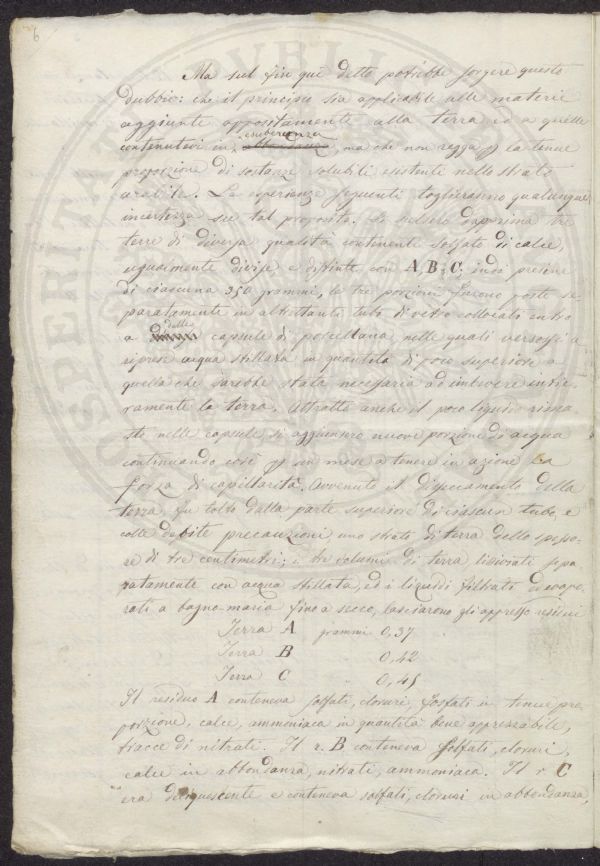 6
Ma sul fin quì detto potrebbe sorgere questo
dubbio: che il principio sia applicabile alle materie
aggiunte appositamente alla terra ed a quelle
contenutevi in esuberanza abbondanza, ma che non regga p la tenue
proporzione di sostanze solubili esistenti nello strato
arabile. Le esperienze seguenti toglieranno qualunque
incertezza su tal proposito. Si scelsero dapprima tre
terre di diversa qualità continenti solfato di calce,
ugualmente divise e distinte con A, B, C, indi presine
di ciascuna 350 grammi, le tre porzioni furono poste se
paratamente in altrettanti tubi di vetro collocati entro
a delle capsule di porcellana, nelle quali versossi a
riprese acqua stillata in quantità di poco superiore a
quella che sarebbe stata necessaria ad imbevere intie-
ramente la terra. Attratto anche il poco liquido rima-
sto nelle capsule, si aggiunsero nuove porzioni di acqua
continuando così p un mese a tenere in azione la
forza di capillarità. Avvenuto il disseccamento della
terra, fu tolto dalla parte superiore di ciascun tubo, e
colle debite precauzioni uno strato di terra dello spesso-
re di tre centimetri; i tre volumi di terra lisciviati sepa
ratamente con acqua stillata, ed i liquidi filtrati ed evapo-
rati a bagno-maria fino a secco, lasciarono gli appresso residui
Terra A grammi 0,37
Terra B " 0,42
Terra C " 0,45
Il residuo A conteneva solfati, cloruri, fosfati in tenue pro-
porzione, calce, ammoniaca in quantità bene apprezzabile,
tracce di nitrati. Il r. B conteneva solfati, cloruri,
calce in abbondanza, nitrati, ammoniaca. Il r C
era deliquescente e conteneva solfati, cloruri in abbondanza,